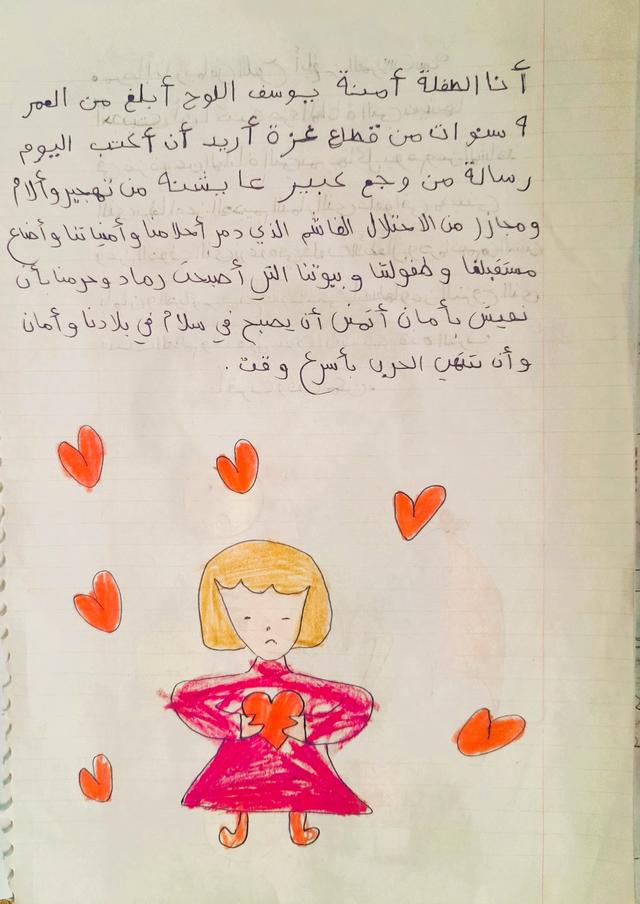 أنا الطفلة أمينة يوسف اللوح أبلغ من العمر
9 سنوات من قطاع غزة أريد أن أكتب اليوم
رسالة من وجع كبير عايشته من تهجير وألام
ومجازر من الاحتلال الغاشم الذي دمر أحلامنا وأمنياتنا وأضاع
مستقبلنا وطفولتنا وبيوتنا التي أصبحت رماد وحرمنا بأن
نعيش بأمان أتمنى أن يصبح في سلام في بلادنا وأمان
وأن تنتهي الحرب بأسرع وقت .